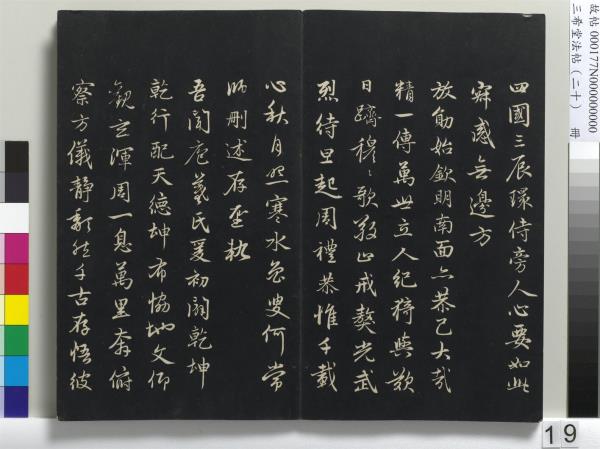 四國三辰環侍旁人心要如此
寂感無邊方
放勛始欽明南面亦恭己大哉
精一傳萬世立人紀猗與歎
日躋穆〻歌敬止戒獒光武
烈待旦起周禮恭惟千載
心秋月照寒水魯叟何常
師刪述存聖軌
吾聞庖羲氏爰初闢乾坤
乾行配天德坤布協地文仰
觀玄渾周一息萬里奔俯
察方儀靜頹然千古存悟彼
故帖 000177N000000000
三希堂法帖(二十) 冊
19